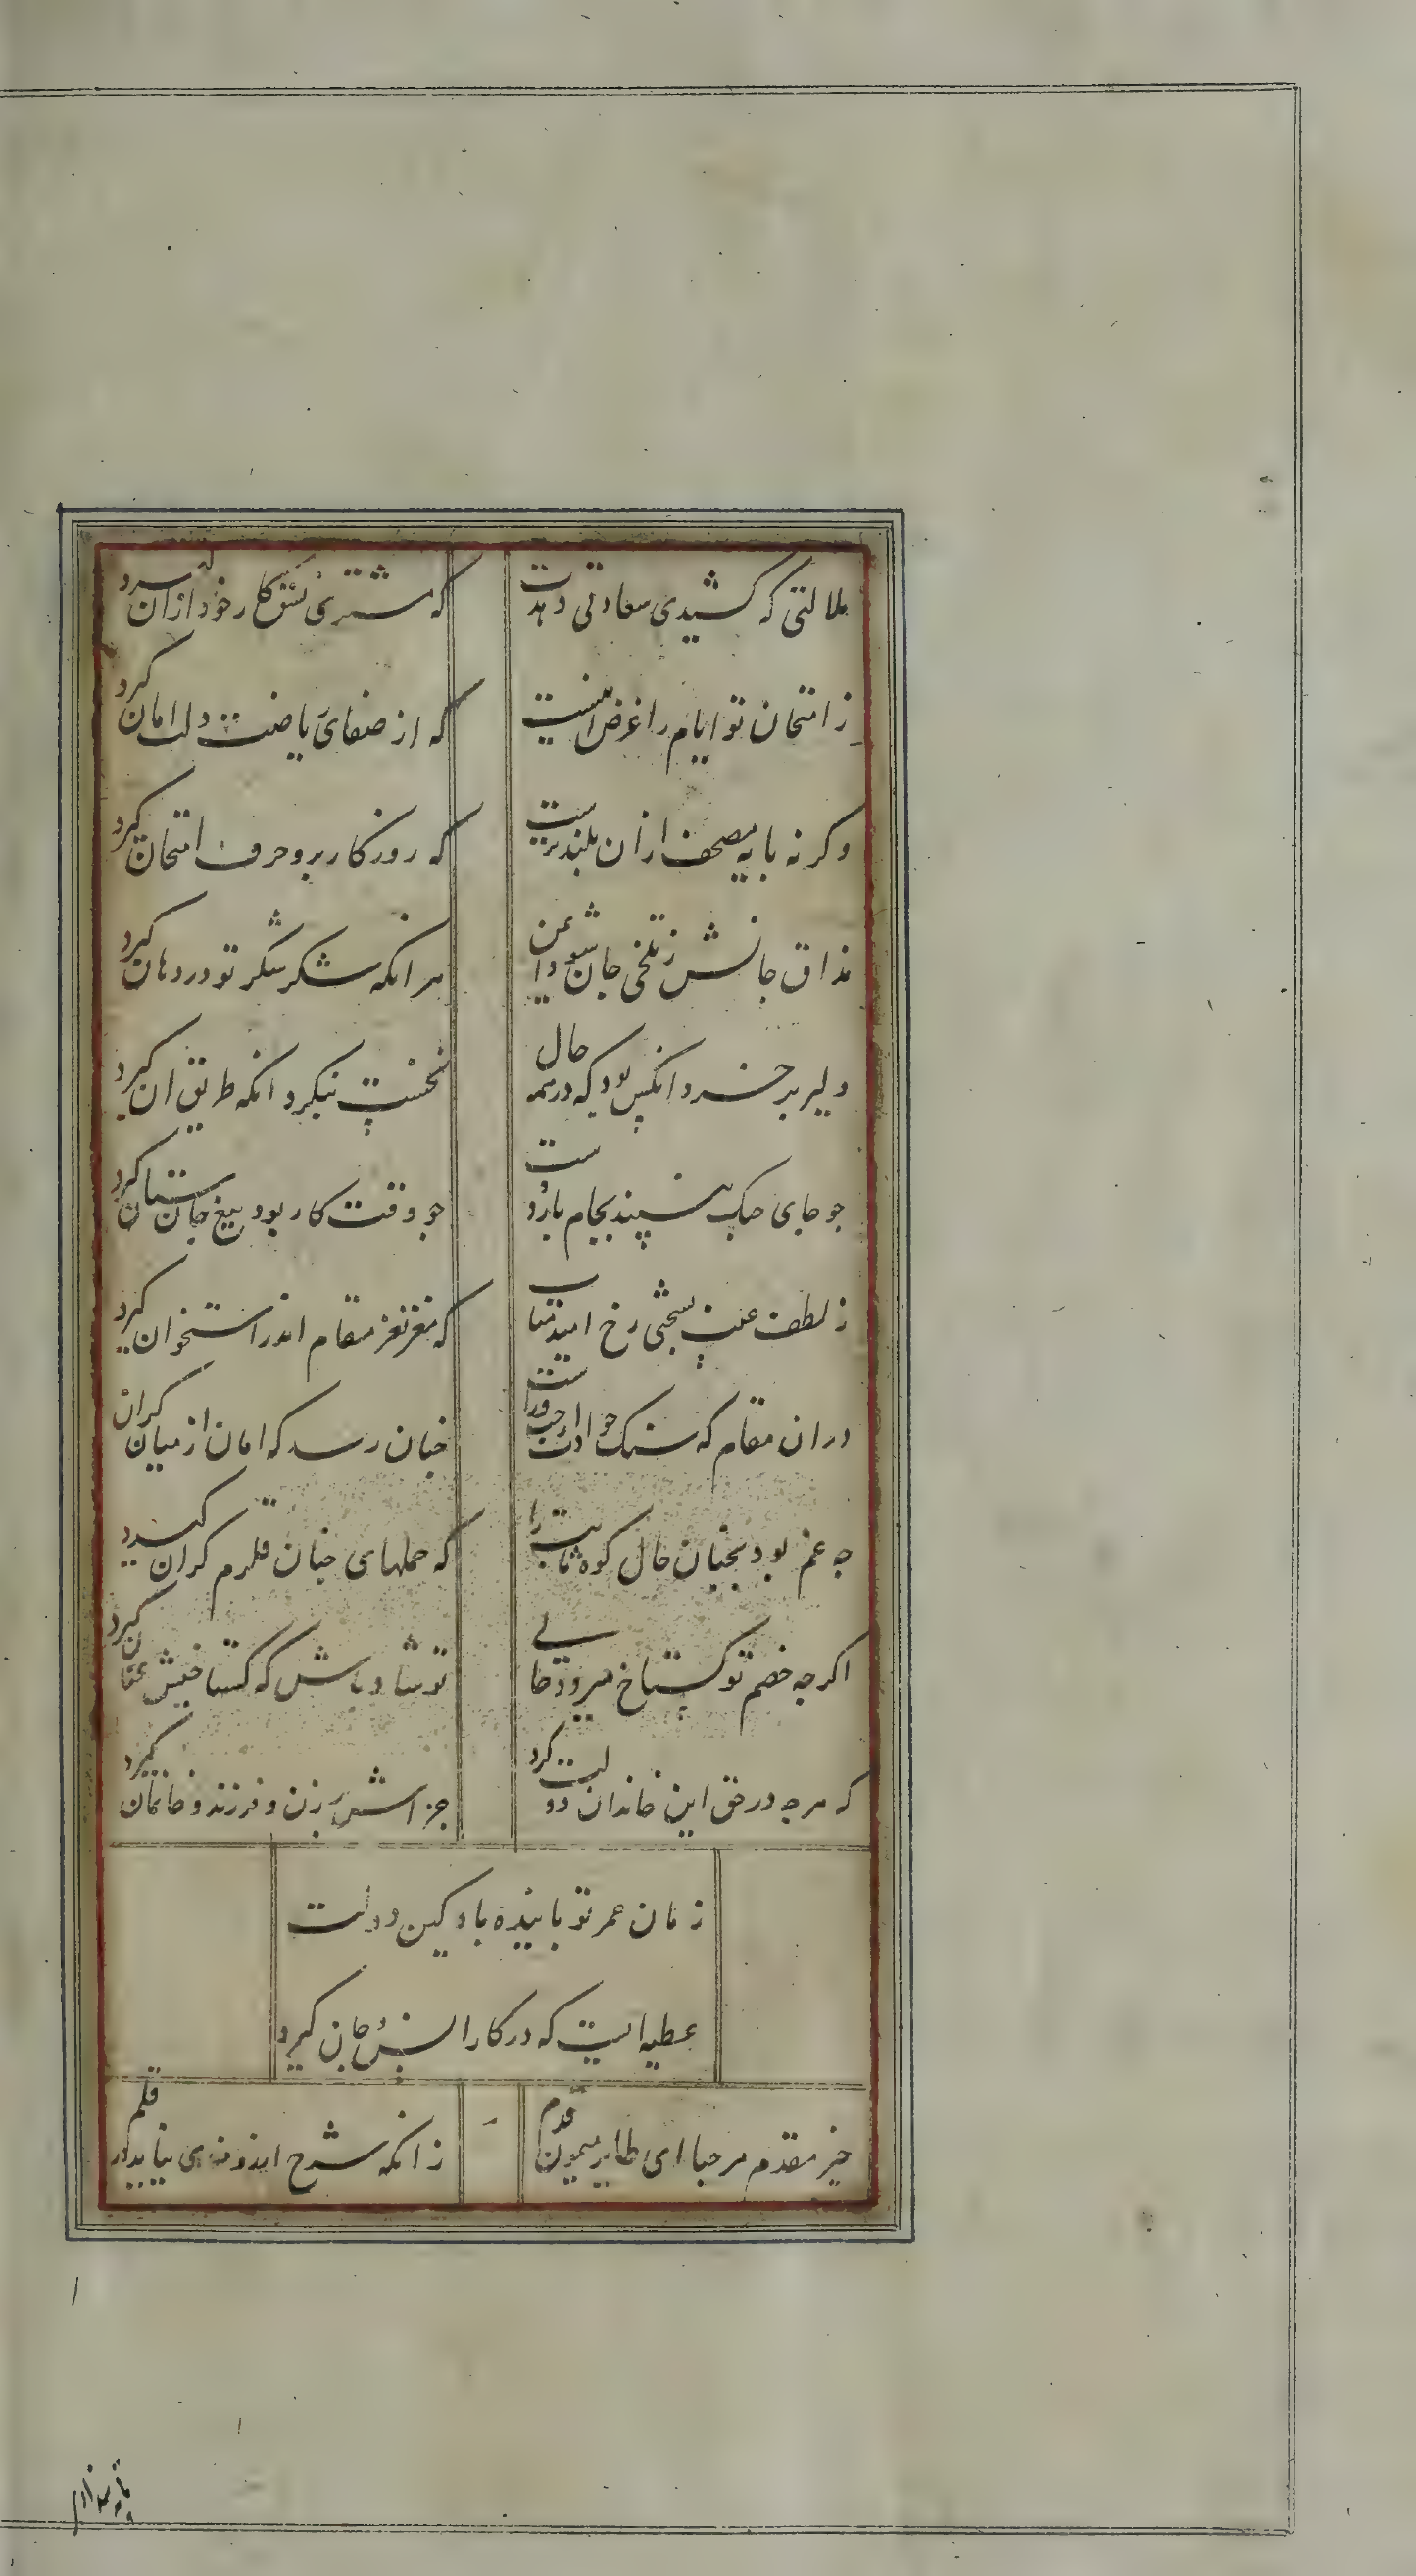 ملالتی که کشیدی سعادتی دهدت که مشتری نسق کار خود ازان کیرد
ز امتحان تو ایام را غرض انیست که از صفای ریاضت دلت امان کیرد
وکرنه بایه مصحف ازان بلندترست که روزکار برو حرف امتحان کیرد
مذاق جانش ز تلخی جان شود ایمن هر انکه شکر شکر تو در دهان کیرد
دلیر بر خرد انکس بود که در همه حال نخست نیکرد انکه طریق ان کیرد
جو جای جنک نبیند بجام یازد دست جو وقت کار بود تیغ جان ستان کیرد
ز لطف غیب بسختی رخ امید متاب که مغز نغز مقام اندر استخوان کیرد
دران مقام که سنک حوادث از جب و راست جنان رسد که امان از میان کران
جه غم بود بجنان حال کوه ثابت را که حملهای جنان قلزم کران کیرد
اکرجه خصم تو کستاخ میرود حالی تو شاد باش که کستاخیش عنان کیرد
که هرجه در حق این خاندان دولت کرد جزاش در زن و فرزند و خانمان کیرد
زمان عمر تو باینده باد کین دولت
عطیه ایست که در کار انس و جان کیرد
خیر مقدم مرحبا ای طایر میمون قدم زانکه شرح ارزومندی نیاید در قلم